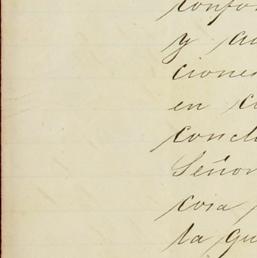 confor
y au
ciones
en c
concl
Señor
cosa
la qu